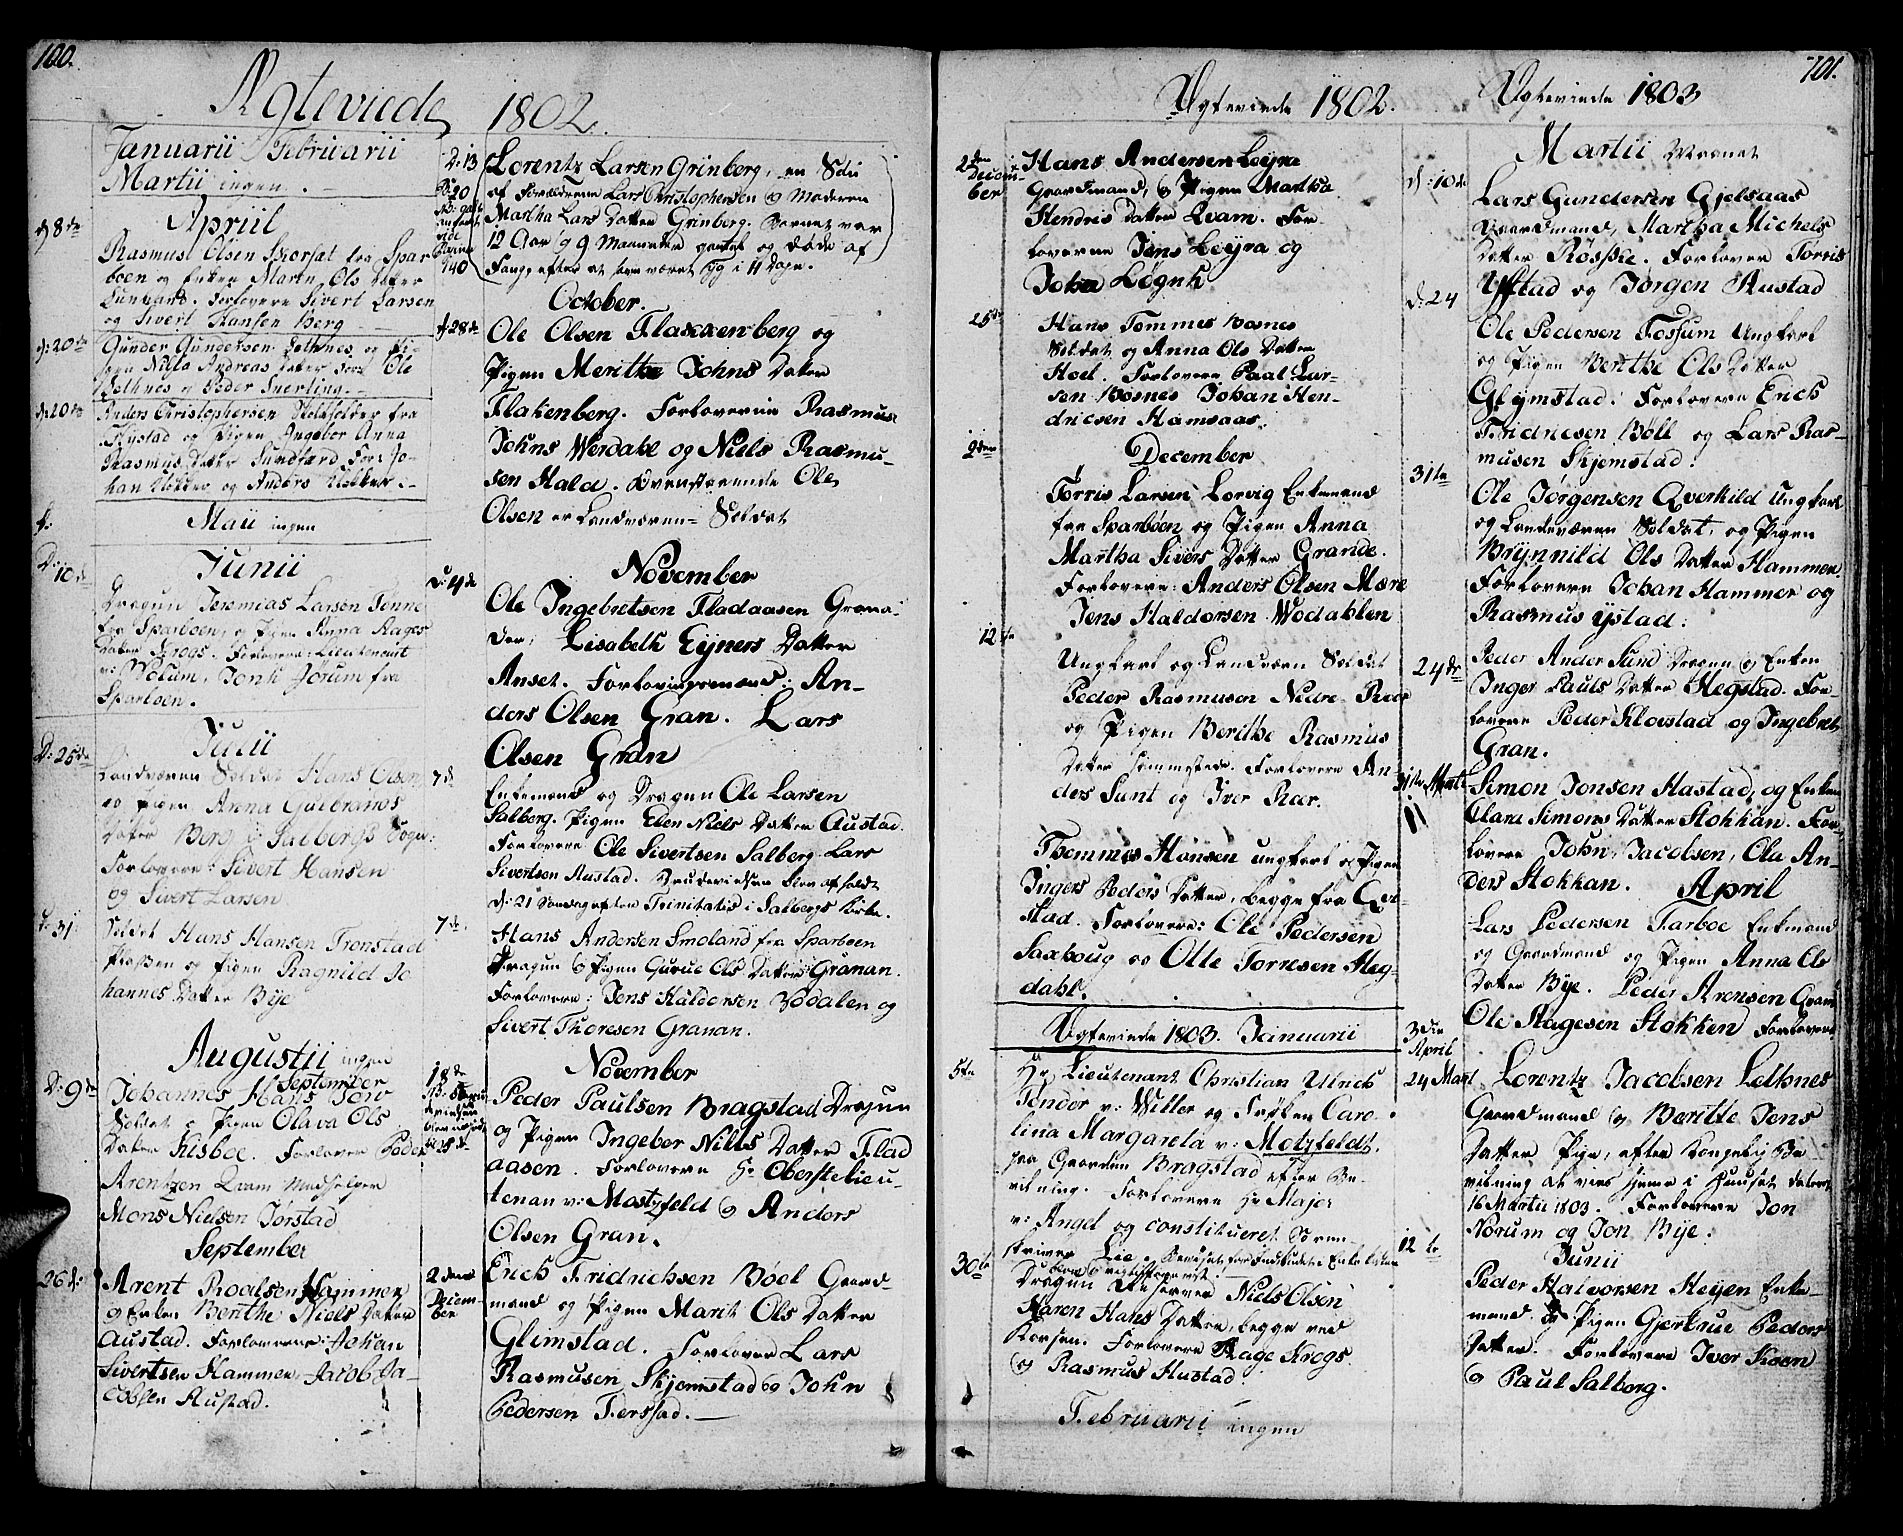 100.
Ægteviede 1802.
Januarii Februarii
Martii ingen.
Apriil
d: 8de
Rasmus Olsen Skorsat fra Spar
boen og Enken Martn Ols Datter
Lunsand. Forlovere Sivert Larsen
og Sivert Hansen Berg
d: 20de
Gunder Gundersen Lethnes og Pi-
gen Nilla Andreas Datter Forl Ole
Lethnes og Peder Suerling.
d: 20de
Anders Christophersen fra
Hystad og Pigen Ingebor Anna
Rasmus Datter Sundfærd. Forl. Jo-
han og Anders
Maii ingen
Junii
D: 10de
Dragun Jeremias Larsen Tenne
fra Sparboen, og Pigen Anna Aages
Datter Krogs. Forlovere: Lieutenant
v: Wolum, Jonk Jørum fra
Sparboen.
Julii
D: 25de
Landværn Soldat Hans Olsen
og Pigen Anna Gulbrands
Datter Berg i Salbergs Sogn:
Forlovere: Sivert Hansen
og Sivert Larsen
d: 31
Soldat Hans Hansen Tronstad
Pladsen og Pigen Ragnild Jo
hannes Datter Bye
Augustii ingen
September
D: 9de
Johannes Hans Torv
Soldat og Pigen Olava Ols
Datter Kisboe. Forlover Peder
Arentzen Qvam
Mons Nielsen Jørstad
September
26d:
Arent Roalsen Hammer
og Enken Berithe Niels Datter
Austad. Forlovere: Johan
Sivertsen Hammer, Jacob Ja-
cobsen Austad.
D: 13
Lorentz Larsen Grinberg, en Søn
af Forældrene Lars Christophersen og Moderen
Martha Lars Datter Grinberg. Barnet var
12 Aar og 9 Maaneder gammel og døde af
Fang efter at have været syg i 11 Dage.
October.
d: 28de
Ole Olsen Flakkenberg og
Pigen Merithe Johns Datter
Flakenberg. Forloverne Rasmus
Johns Werdahl og Niels Rasmu-
sen Hald. Ovenstaaende Ole
Olsen er Landværn-Soldat
November
d: 4de
Ole Ingebretsen Fladaasen Grena-
der, Lisabeth Eyners Datter
Anset. Forlovingsmænd: An-
ders Olsen Gran. Lars
Olsen Gran
7de
Enkemand og Dragun Ole Larsen
Salberg. Pigen Elen Niels Datter Austad.
Forlovere Ole Sivertsen Salberg. Lars
Sivertsen Austad. Brudevielsen blev afholdt
d: 21 Søndag efter Trinitatis i Salbergs Kirke.
7de.
Hans Andersen Smoland fra Sparboen
Dragun og Pigen Gurue Ols Datter Granan.
Forlovere: Jens Haldorsen Wodalen og
Sivert Thoresen Granan.
November
18de
Peder Paulsen Bragstad Dragun
og Pigen Ingeber Nills Datter Flad
aasen. Forlovere Hr Oberstelieu-
tenan v: Motzfeld og Anders
Olsen Gran.
2den
Decem-
ber
Erich Fridrichsen Bøel Gaard
mand og Pigen Marit Ols Datter
Glimstad. Forlover Lars
Rasmusen Skjemstad og John
Pedersen Ferstad.
101.
Ægteviede 1802.
2den
Decem-
ber
Hans Andersen Leyra
Gaardmand, og Pigen Martha
Hendris Datter Qvam. For
loverne Jens Leyra og
John Løgnk
25de
Hans Tommes Bosnes
Soldat og Anna Ols Datter
Hoel. Forlovere Paal Lar-
sen Bosnes Johan Hen-
dricsen Hamsaas.
December
9den
Torris Larsen Lorvig Enkemand
fra Sparboen og Pigen Anna
Martha Sivers Datter Grande.
Forlovere: Anders Olsen Mære
Jens Haldorsen Wodahlen
12te
Ungkarl og Landværn Soldat
Peder Rasmusen Nedre Rær
og Pigen Berithe Rasmus
Datter Hommestede. Forlovere An
ders Sunt og Iver Rær.
Thommes Hansen ungkarl og Pigen
Ingers Peders Datter, begge fra Qve-
stad. Forlovere: Ole Pedersen
Saxhoug og Olle Torresen Heg-
dahl.
Ægteviede 1803. Januarii
5te
Hr Lieutenant Christian Ulrich
Tønder v: Willer og Frøken Caro
lina Margareta v: Motzfeldt.
paa Gaarden Bragstad efter Be
vilning. Forlovere Hr Major
v: Angel og constitueret Soren
skriver Lie.
30te
Dragun Niels Olsen
Karen Hans Datter, begge ved
Korsen. Forlovere Aage Krogs.
og Rasmus Hustad
Februarii ingen
Ægteviede 1803
Martii Maanet
d: 10de
Lars Gundersen Gjelsaas
Gaardmand, Martha Michels
Datter Røsske. Forlover Torris
Ystad og Jørgen Rustad
d: 24
Ole Pedersen Fossum Ungkarl
og Pigen Berithe Ols Datter
Glymstad. Forlovere Erich
Fridricsen Bøll og Lars Ras-
musen Skjemstad.
31te
Ole Jørgensen Qverkild Ungkarl
og Landværn Soldat, og Pigen
Brynnild Ols Datter Hammer.
Forlovere Johan Hammer og
Rasmus ystad:
24de
Peder Ander Sund Dragun og Enken
Inger Pauls Datter Hegstad. For-
lovere Peder Klovstad og Ingebret
Gran.
31te Marti
Simon Jonsen Hastad, og Enken
Clara Simons Datter Stokkan. For-
lovere John Jacobsen, Ola An-
ders Stokkan.
April
Lars Pedersen Farboe Enkmand
og Gaardmand og Pigen Anna Ols
Datter Bye. Peder Arensen Gran
Ole Aagesen Stokken Forlovere
3die
April
24 Mart
Lorentz Jacobsen Lethnes
Gaardmand og Berithe Jens
Datter Pige, efter Kongelig Be
vilning at vies hjemme i Huuset dateret
16 Martii 1803. Forlovere Jon
Norum og Jon Bye:
Junii
12te
Peder Halvorsen Heyen Enke
mand og Pigen Gjertrue Peders
Datter. Forlovere Iver Koen
og Paul Salberg.